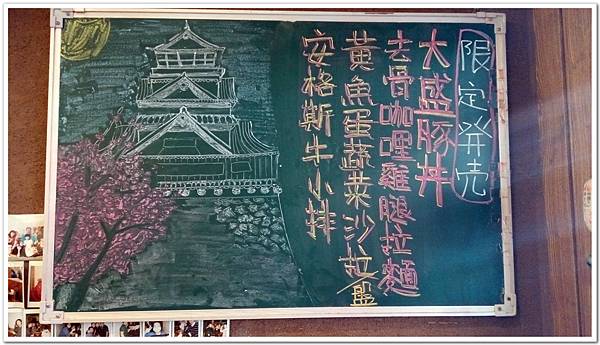 限定発売
大盛豚丼
去骨咖哩雞腿拉麵
黃魚蛋蔬菜沙拉盤
安格斯牛小排